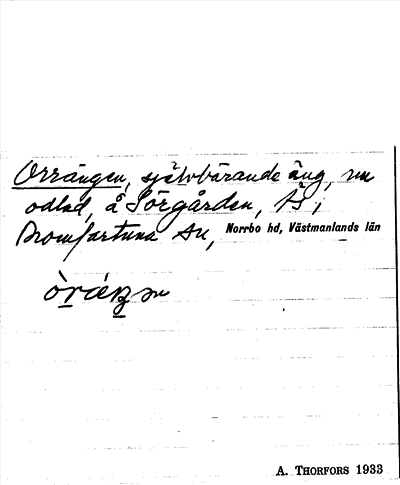 Orrängen, självbärande äng, nu
odlad, å Sörgården, 
Romfartuna sn, Norrbo hd, Västmanlands län
A. THORFORS 1933